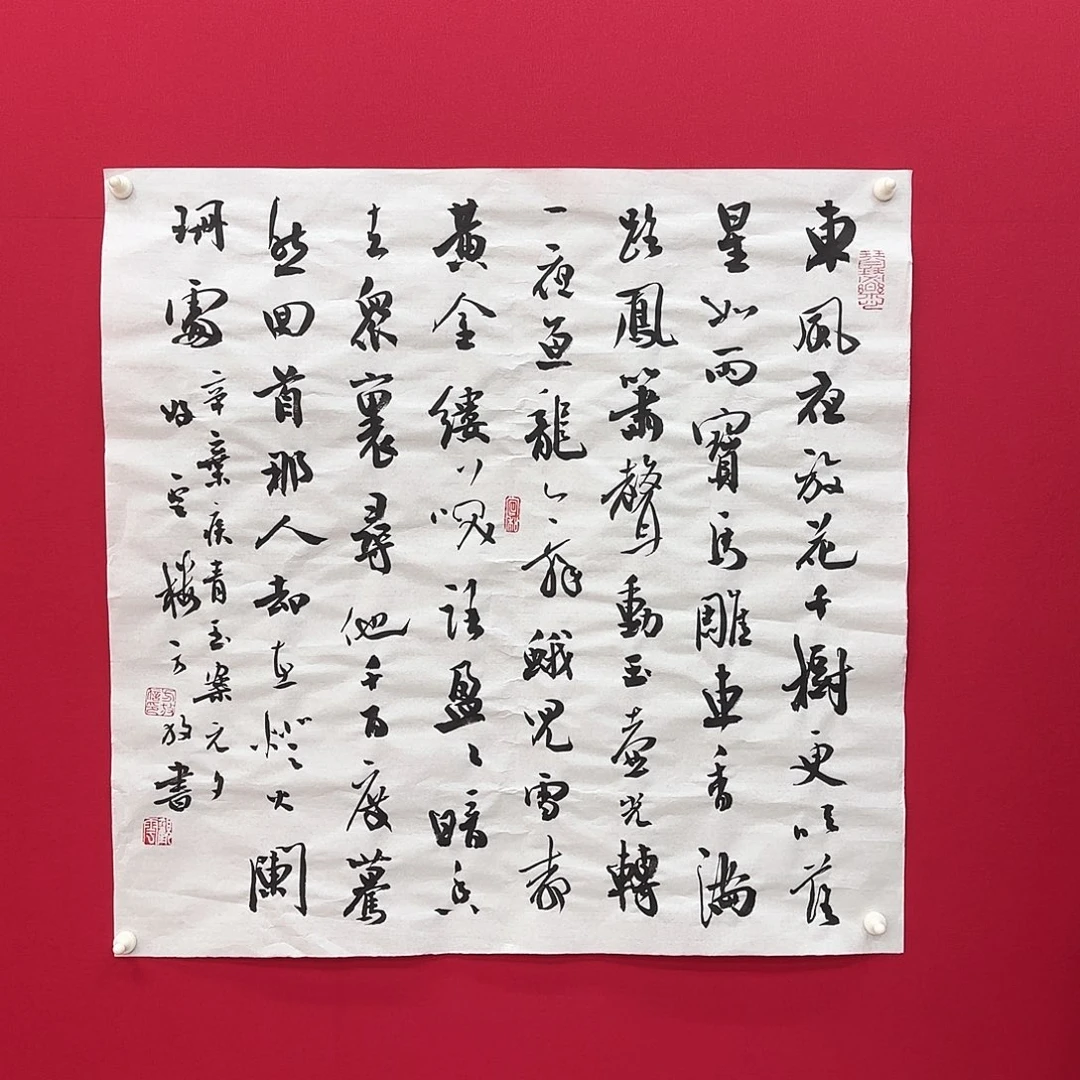 東風夜放花千樹更吹落
星如雨寶馬雕車香滿
路鳳簫聲動玉壺光轉
一夜魚龍舞蛾兒雪
黃金縷笑語盈〻暗香
去衆裏尋他千百度驀
然回首那人却在燈火闌
珊處
辛棄疾青玉案元夕
樓方放書